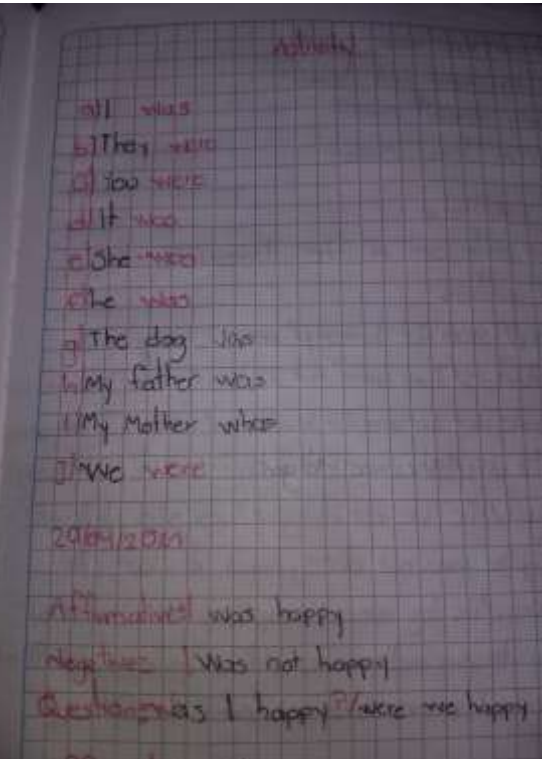 Activity
a) I was
b) They were
c) You were
d) It was
e) She was
f) He was
g) The dog was
h) My father was
i) My Mother whas
j) We were
Affirmative I was happy
Negative I was not happy
Question was I happy? / were we happy